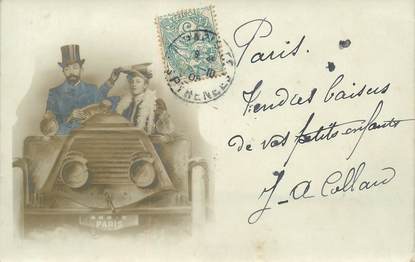 Paris.
Tendres baisers
de vos petits enfants
J_A Collard
PYRENEES
PARIS